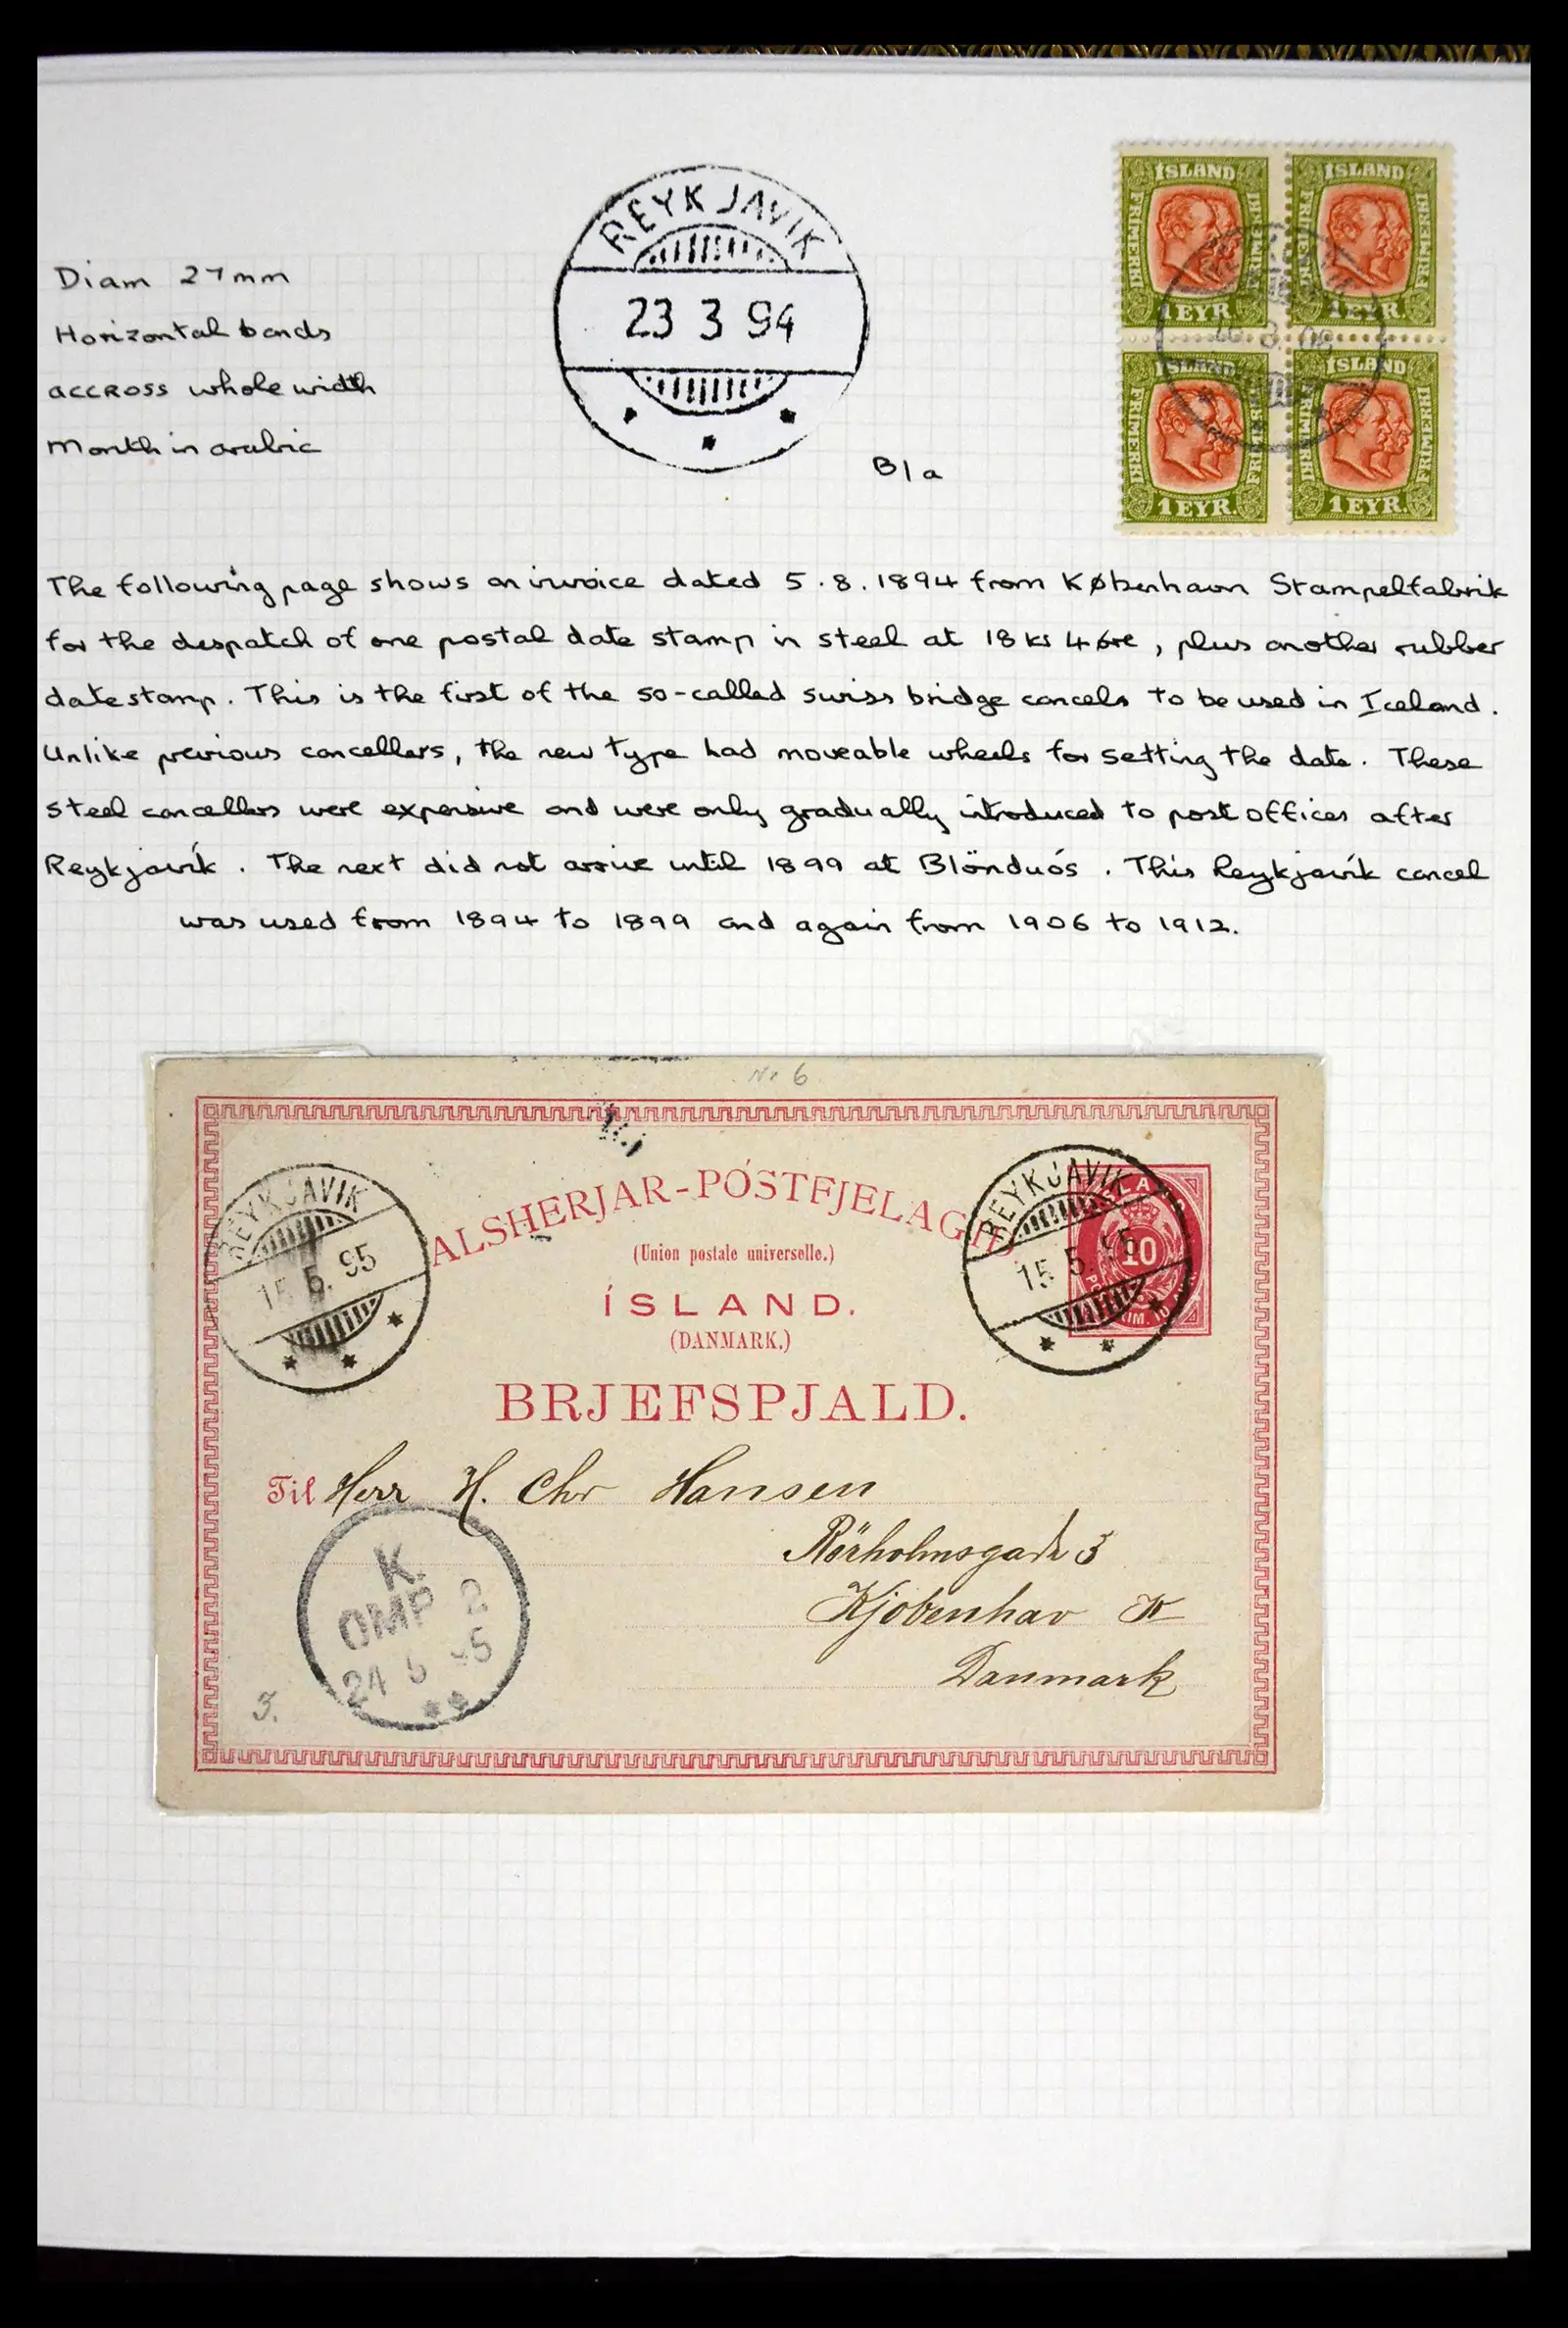 REYKJAVIK
23 3 94
B1a
Diam 27mm
Horizontal bands
accross whole width
Month in arabic
ÍSLAND ÍSLAND
FRIMERKI FRIMERKI FRIMERKI FRIMERKI
1 EYR. 1 EYR.
ÍSLAND ÍSLAND
FRIMERKI FRIMERKI FRIMERKI FRIMERKI
1 EYR. 1 EYR.
The following page shows an invoice dated 5.8.1894 from København Stampelfabrik
for the despatch of one postal date stamp in steel at 18 kr 4 öre, plus another rubber
datestamp. This is the first of the so-called swiss bridge cancels to be used in Iceland.
Unlike previous cancellers, the new type had moveable wheels for setting the date. These
steel cancellers were expensive and were only gradually introduced to post offices after
Reykjavík. The next did not arrive until 1899 at Blönduós. This Reykjavík cancel
was used from 1894 to 1899 and again from 1906 to 1912.
Nr 6
REYKJAVIK
15. 5. 95
ALSHERJAR-PÓSTFJELAGIÐ
REYKJAVIK
15. 5. 95
10
(Union postale universelle.)
ÍSLAND.
(DANMARK.)
BRJEFSPJALD.
Til Herr H. Chr Hansen
Rörholmsgade 3
Kjöbenhav K
Danmark
K.
OMP 2
24 5 95
3.